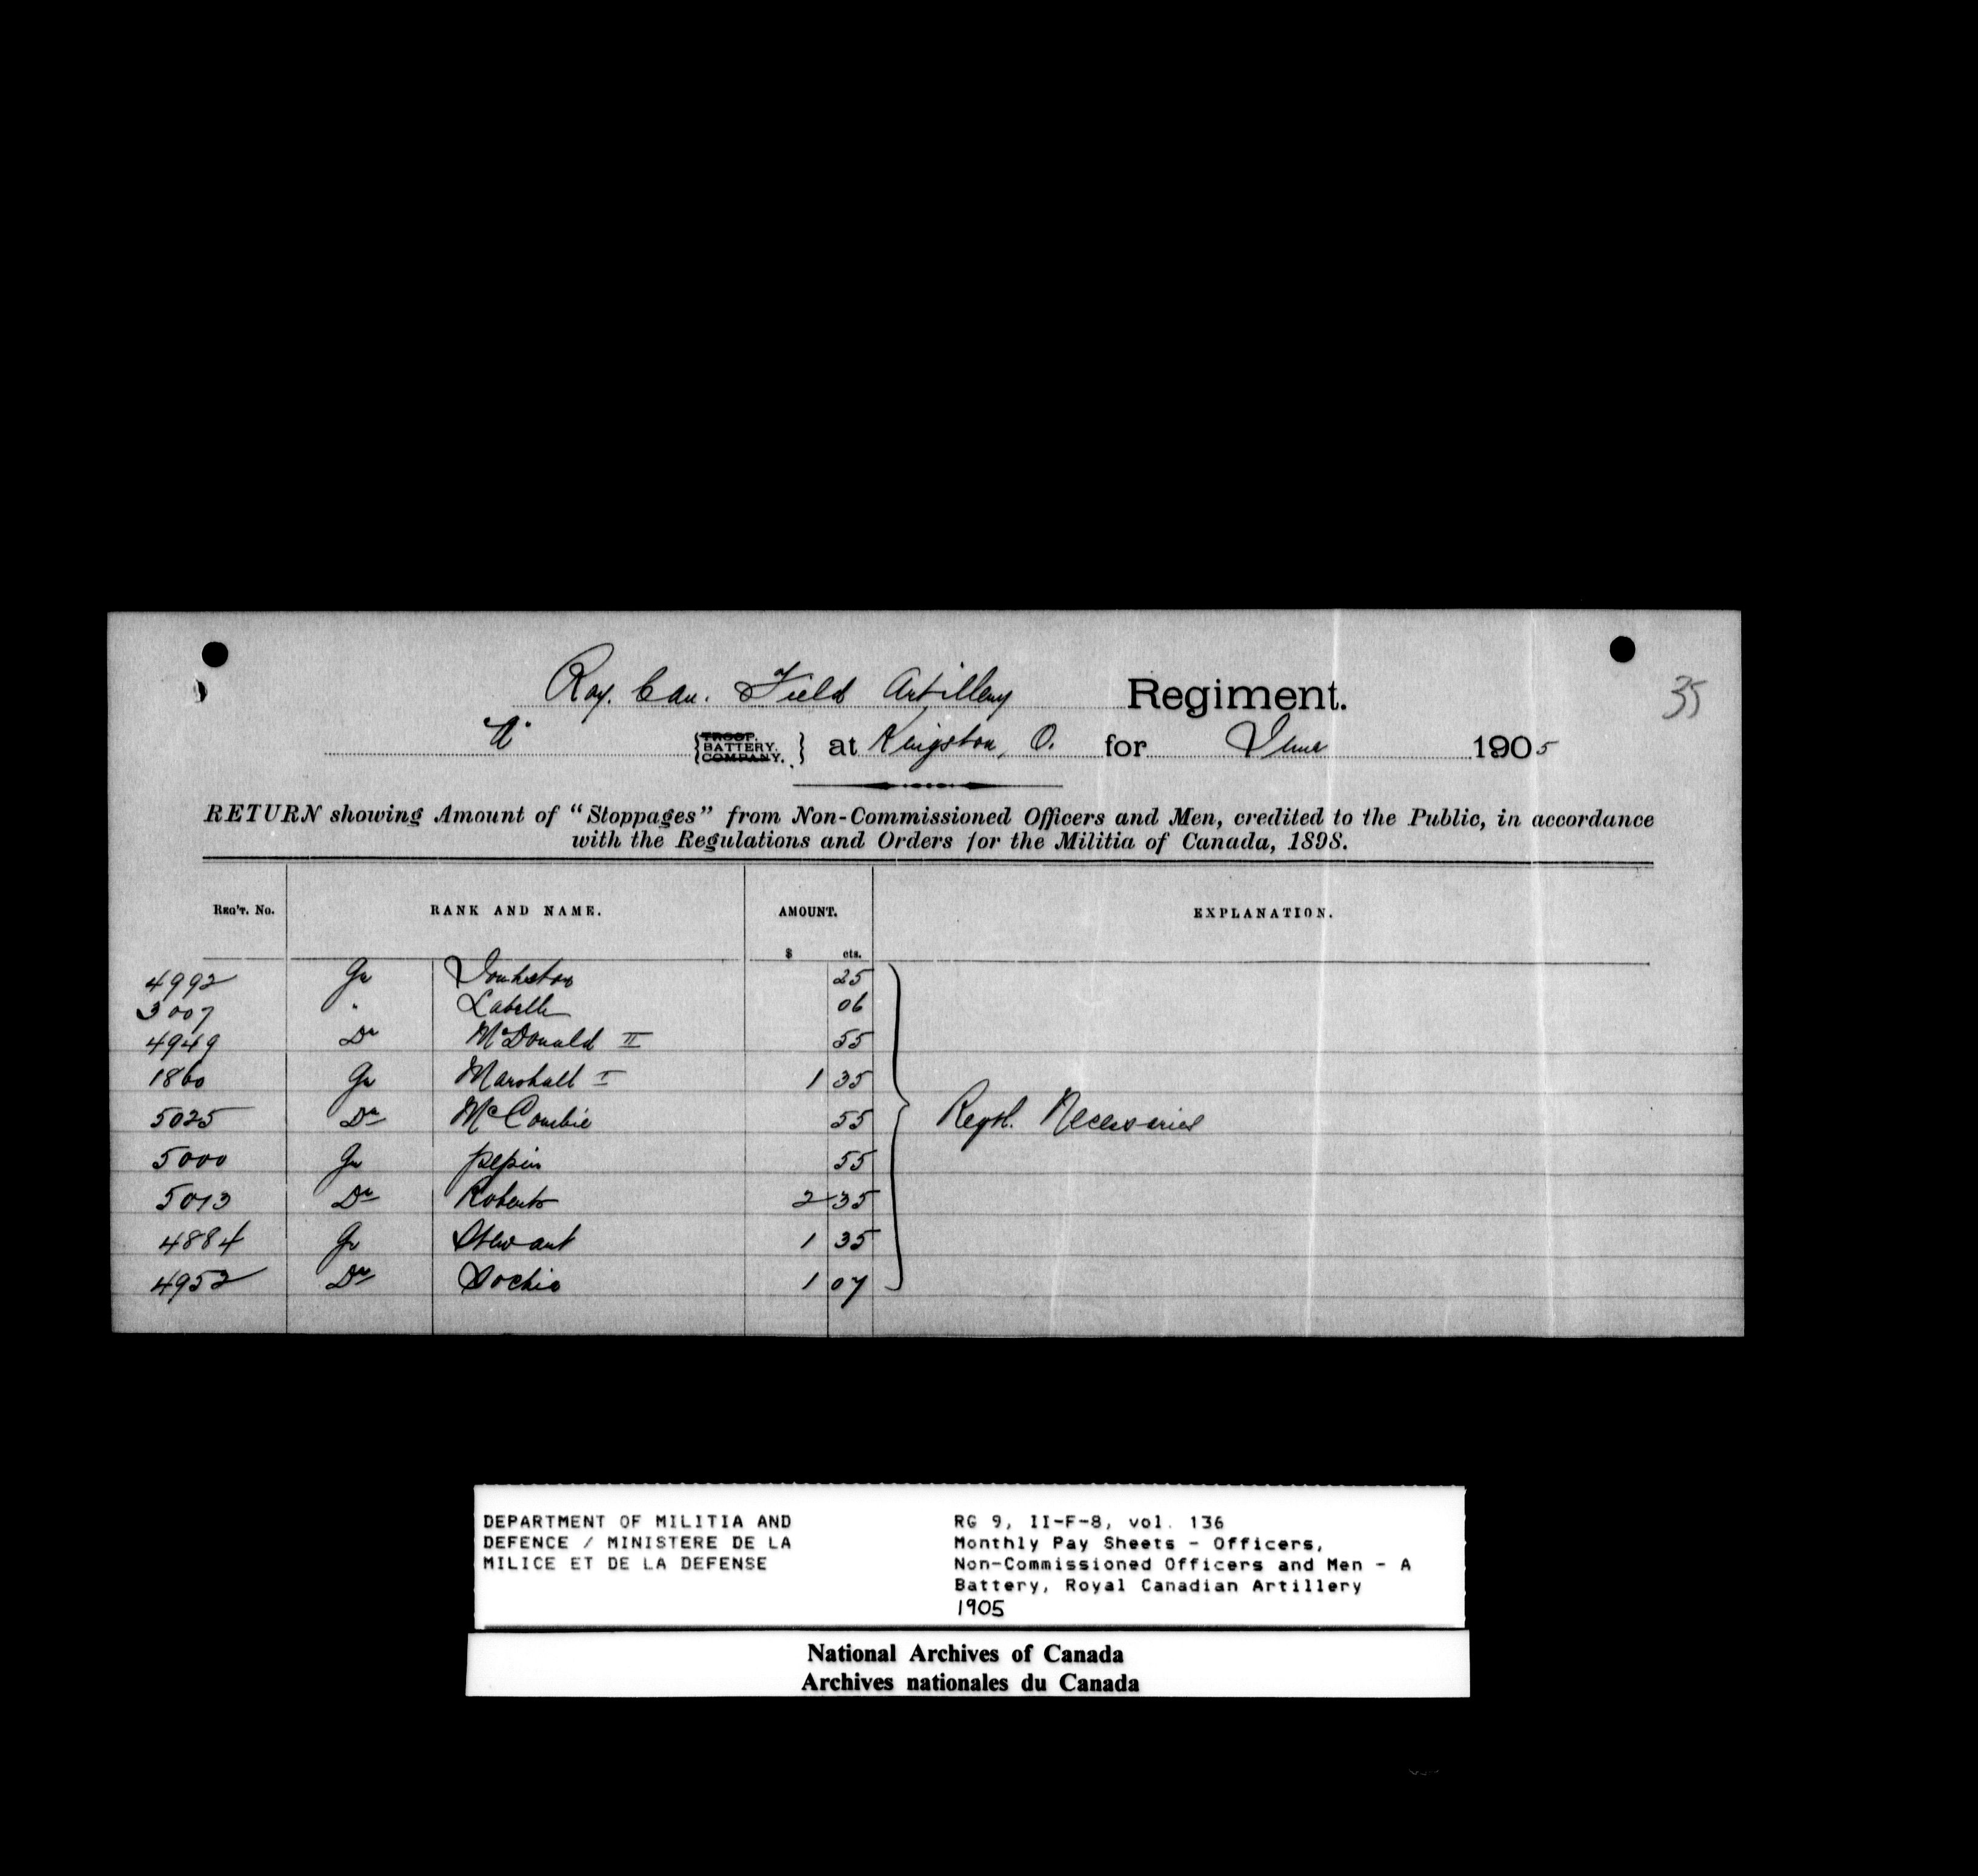 Roy. Can. Field Artillery Regiment.
35
"A" { TROOP. BATTERY. COMPANY. } at Kingston, O. for June 1905
RETURN showing Amount of "Stoppages" from Non-Commissioned Officers and Men, credited to the Public, in accordance
with the Regulations and Orders for the Militia of Canada, 1898.
REG'T. No. RANK AND NAME. AMOUNT. EXPLANATION.
$ cts.
4992 Gr Johnston 25
3007 " Labelle 06
4949 Dr McDonald II 55
1860 Gr Marshall I 1 35
5025 Dr McCombie 55
Regtl. Necessaries
5000 Gr Pepin 55
5013 Dr Roberts 2 35
4884 Gr Stewart 1 35
4952 Dr 1 07
DEPARTMENT OF MILITIA AND
DEFENCE / MINISTERE DE LA
MILICE ET DE LA DEFENSE
RG 9, II-F-8, vol. 136
Monthly Pay Sheets - Officers,
Non-Commissioned Officers and Men - A
Battery, Royal Canadian Artillery
1905
National Archives of Canada
Archives nationales du Canada